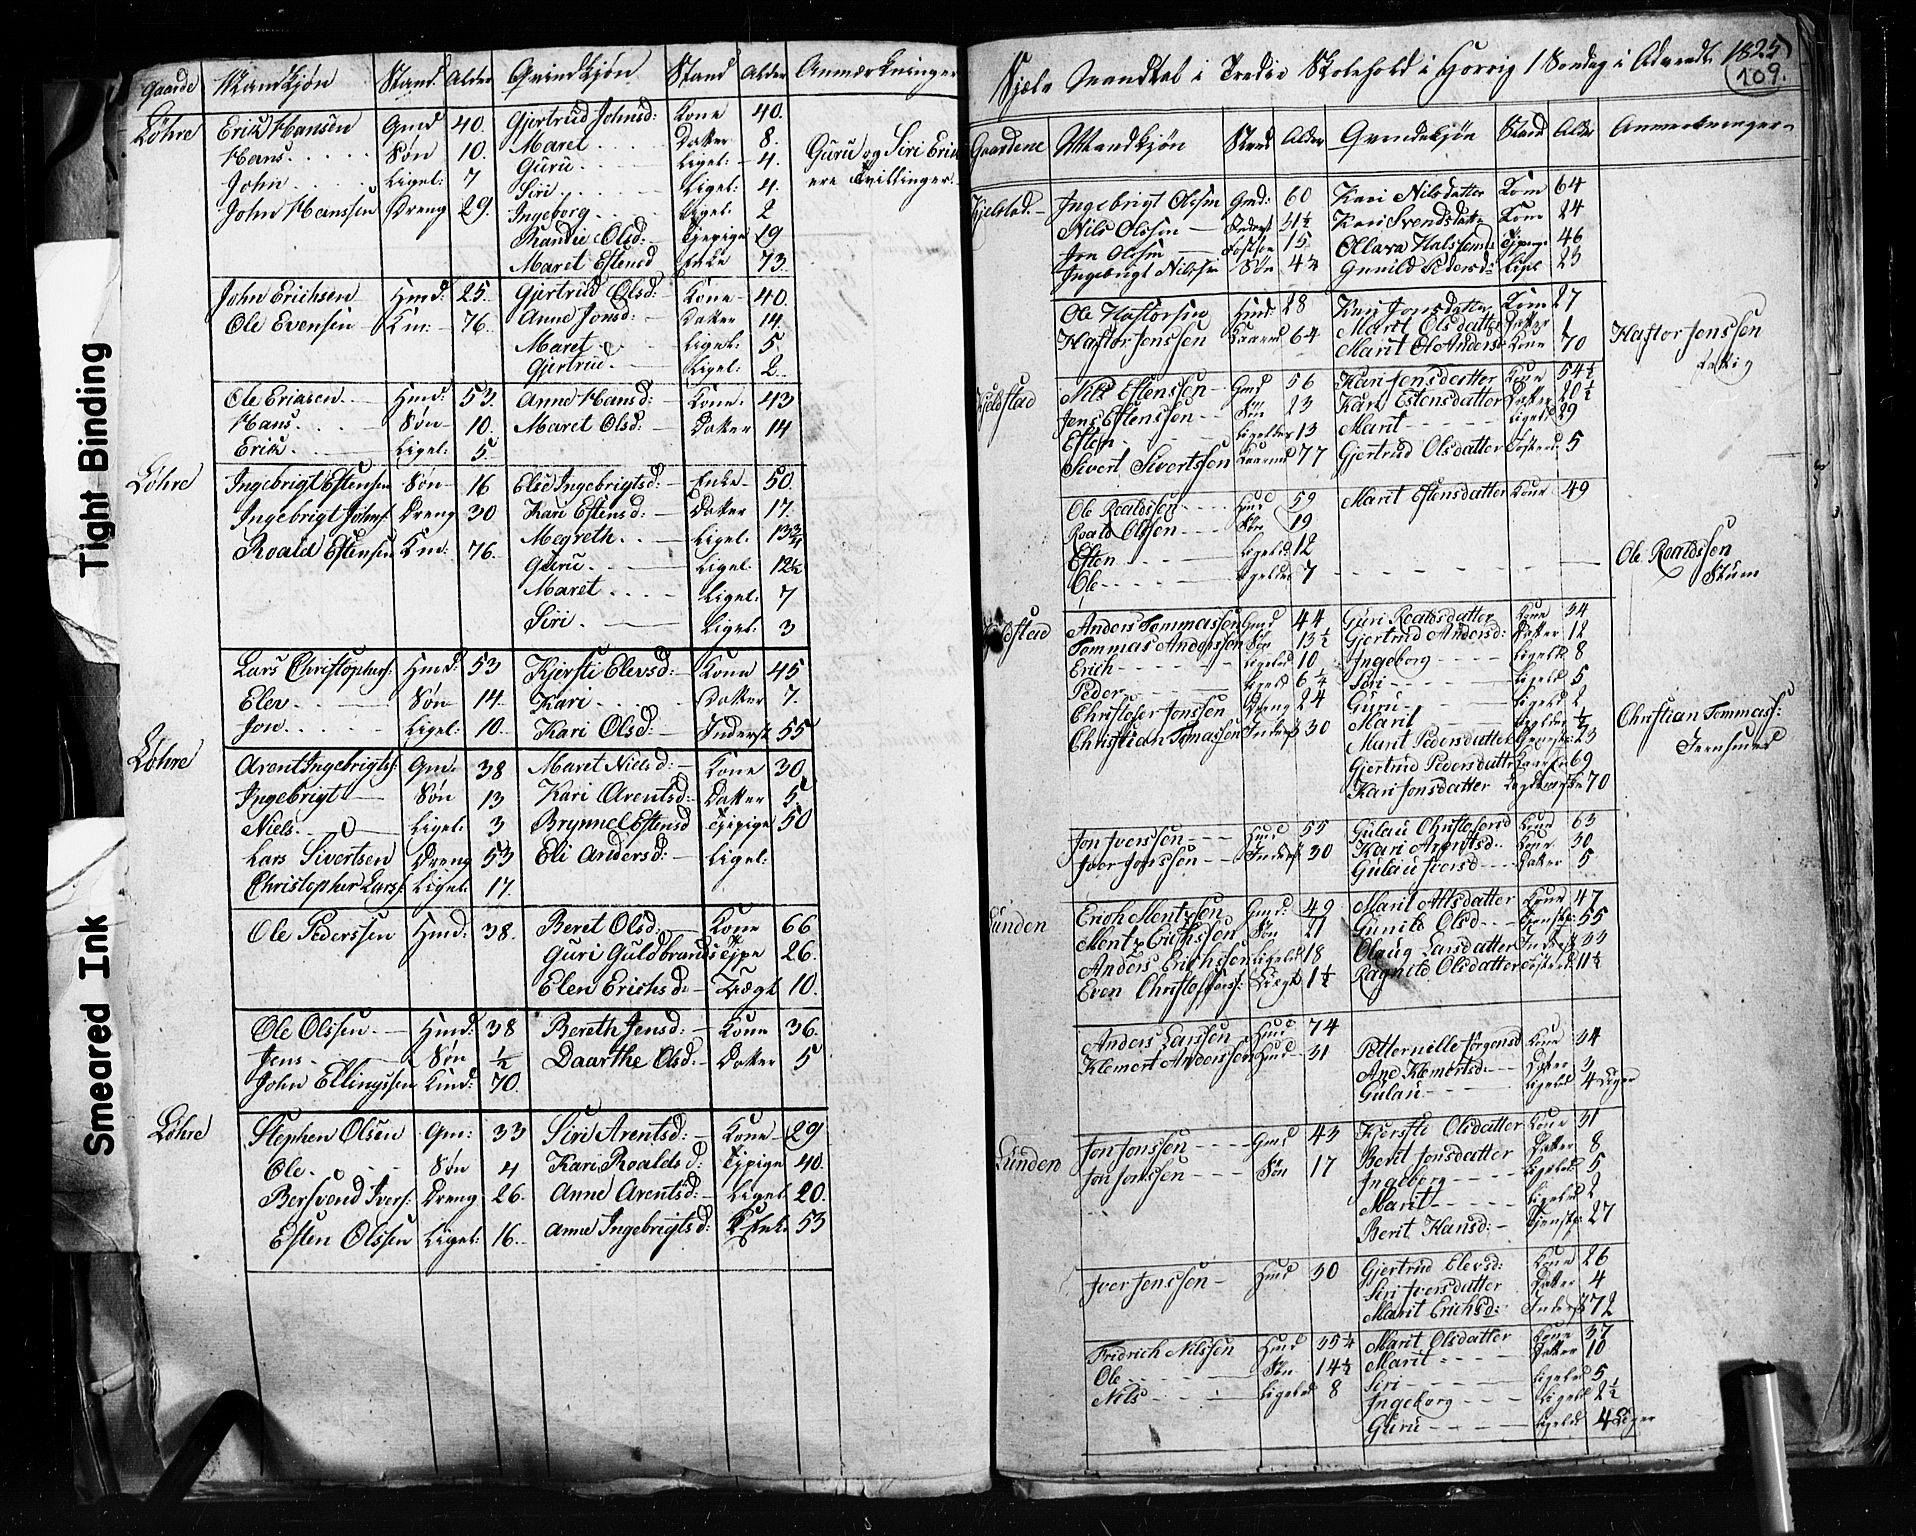 Tight Binding
Smeared Ink
Gaarde Mandkjøn Stand Alder Qvindkjøn Stand Alder Anmærkninger
Løhre Erik Hansen Gmd 40. Gjertrud Johnsd: Kone 40.
Hans Søn 10. Maret Datter 8.
John Ligel: 7 Guru Ligel: 4. Guru og Siri Eric
John Hanssen Dreng 29. Siri Ligel: 4. ere Tvillinger.
Ingeborg Ligel: 2
Randi Olsd: Tjpige 19
Maret Estensd Enke 73.
John Erichsen Hmd: 25. Gjertrud Olsd: Kone 40.
Ole Evensen Km: 76. Anne Jonsd: Datter 14.
Maret Ligel: 5
Gjertrud Ligel: 2
Ole Ericsen Hmd: 53. Anne Hansd: Kone 43
Hans Søn 10. Maret Olsd: Datter 14
Erik Ligel: 5
Løhre Ingebrigt Estensen Søn 16 Elie Ingebrigtsd: Enke 50.
Ingebrigt Johns: Dreng 30 Kari Estensd: Datter 17.
Roald Estensen Km: 76. Megreth Ligel: 13 3/4
Guru Ligel: 12½
Maret Ligel: 7
Siri Ligel: 3
Lars Christophers: Hmd: 53 Kjersti Elevsd: Kone 45
Elev Søn 14. Kari Datter 7.
Jon Ligel: 10. Kari Olsd: Inderst 55
Løhre Arent Ingebrigts: Gm: 38 Maret Nielsd: Kone 30
Ingebrigt Søn 13 Kari Arentsd: Datter 5.
Niels Ligel: 3 Brynnel Estensd Tjpige 50
Lars Sivertsen Dreng 53 Eli Andersd: Ligel:
Christopher Lars: Ligel: 17.
Ole Pederssen Hmd: 38. Beret Olsd: Kone 66
Guri Guldbrandsd Tjpe 26.
Elen Erichsd: Lægd 10.
Ole Olssen Hmd: 38 Bereth Jensd: Kone 36.
Jens Søn ½ Daarthe Olsd: Datter 5
John Ellingssen Kmd: 70.
Løhre Stephen Olsen Gm: 33 Siri Arentsd: Kone 29
Ole Søn 4 Kari Roaldsd: Tjpige 40.
Bersvend Ivers: Dreng 26. Anne Arentsd: Ligel: 20.
Esten Olssen Ligel: 16. Anne Ingebrigtsd: Enke 53
Sjæle Mandtal i Tredie Skolehold i Horrig 1 Søndag i Advendt 1825
109.
Gaardene Mandkjøn Stand Alder Qvindekjøn Stand Alder Anmerkninger
Kjelstad Ingebrigt Olssen Gmd: 60 Kari Nilsdatter Kone 64
Nils Olssen Inderst 31½ Kari Svendsdatter Kone 24
Jon Olssen Fostsøn 15 Ollava Halstensd: Tjpige 46
Ingebrigt Nilssen Søn 4¼ Gunild Pedersd: Ligel 23
Ole Hastorsen Hmd: 28 Kari Jonsdatter Kone 27
Hastor Jenssen Kaarmd 64 Marit Olsdatter Datter 1 Hastor Jenssen
Marit Ole Andersd Kone 70
Kjeldstad Nils Estenssen Gmd 56 Kari Jensdatter Kone 54½
Jens Estenssen Søn 23 Kari Estensdatter Datter 20½
Esten Ligeledes 13 Marit Ligeled 29
Sivert Sivertssen Kaarmd 77 Gjertrud Olsdatter Fosterd: 5
Ole Roaldssen Hmd 59 Marit Estensdatter Kone 49
Roald Olssen Søn 19
Esten Ligeled 12 Ole Roaldssen
Ole Ligeledes 7 Stum
Anders Tommassen Gmd 44 Guri Roaldsdatter Kone 34
Tommas Anderssen Søn 13½ Gjertrud Andersd: Datter 12
Erich Ligeled 10 Ingeborg Ligeled 8
Peder Ligeld 6¼ Siri Ligeld 5
Christofer Jonssen Dreng 24 Guru Ligeld 2 Christian Tommass:
Christian Tomassen Inderst 30 Marit Ligeldes ½ Jernsmed
Marit Pedersdatter Tjenstp: 23
Gjertrud Pedersdatter 69
Kari Jonsdatter 70
Jon Iverssen Hmd 55 Gulau Christofersd Kone 63
Iver Jonssen Inderst 30 Kari Arentsd: Kone 30
Gulau Iversd Datter 5
Lunden Erich Mentzsen Gmd: 49 Marit Atlsdatter Kone 47
Mentz Erichssen Søn 21 Gunild Olsd Tjenstp: 55
Anders Erichssen Ligeled 18 Olaug Larsdatter Inderst 33
Even Christoffers: Lægd 1½ Ragnild Olsdatter Fosterd: 11½
Anders Larssen Hmd 74
Klemort Anderssen Hmd 31 Petternelle Jørgensd Kone 34
Ane Klemortsd: Datter 3
Gulau Ligeled 4 Uger
Lunden Jon Jonssen Gmd 43 Kjerstie Olsdatter Kone 31
Jon Jonssen Søn 17 Berit Jonsdatter Datter 8
Ingeborg Ligeled 5
Marit Ligeled 2
Berit Hansd: Tjenstp: 27
Iver Jenssen Hmd 30 Gjertrud Elevsd: Kone 26
Siri Iversdatter Datter 4
Marit Erichsd: Inderst 72
Fridrich Nilssen Hmd 35¼ Marit Olsdatter Kone 37
Ole Søn 14½ Marit Datter 10
Nils Ligeled 8 Siri Ligeled 5
Ingeborg Ligeld 2½
Guru Ligeld 4 Uger